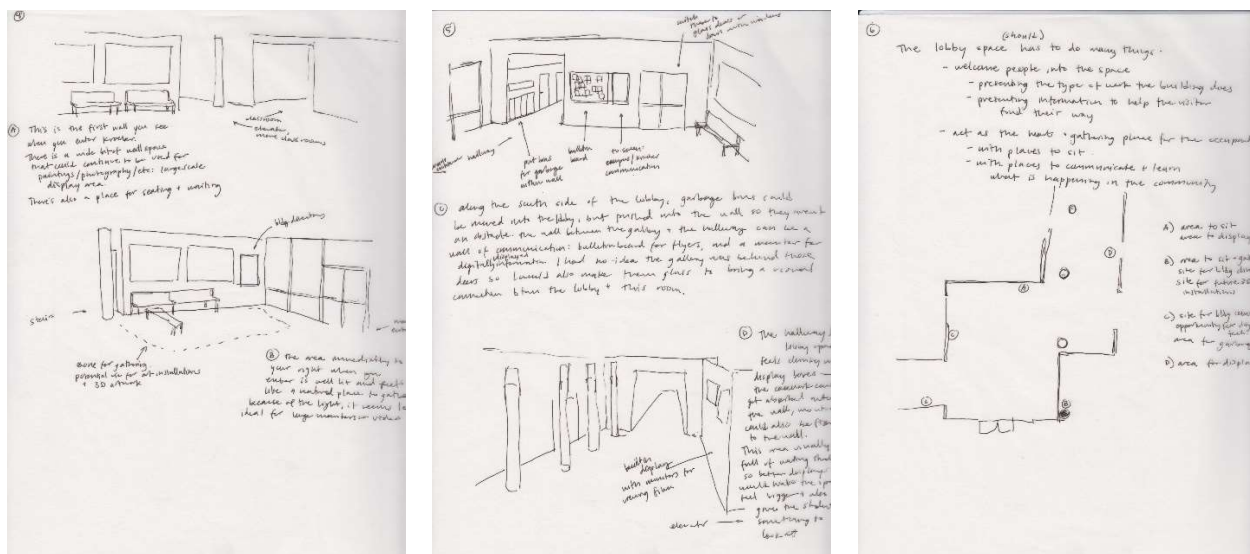 4
classroom
elevator
more classrooms
A This is the first wall you see
when you enter kroeber.
There is a wide bit of wall space
that could continue to be used for
paintings/photography/etc: large scale
display area
There's also a place for seating + waiting
bldg directory
stairs
zone for gathering
potential use for art installations
+ 3D artwork
B The area immediately to
your right when you
enter is well lit and feels
like a natural place to gather
because of the light, it seems
ideal for
5
switch
these to
glass doors or
doors with windows
hallway
put bins
for garbage
within wall
bulletin
board
tv screen
communication
C along the south side of the lobby, garbage bins could
be moved into the lobby, but pushed into the wall so they aren't
an obstacle. the wall between the gallery + the hallway can be a
wall of communication: bulletin board for flyers, and a monitor for
digitally displayed information. I had no idea the gallery was behind those
doors so I would also make them glass to bring a visual
connection btwn the lobby + this room.
D The hallway
feels
display boxes
the casework
get absorbed
the wall,
could also be
to the wall.
This area usually
full of waiting
so better displays
would make the
feel bigger + also
gives the
something to
look at
built in
display
with monitors for
viewing films
elevator
6
(should)
The lobby space has to do many things.
- welcome people into the space
- presenting the type of work the building does
- presenting information to help the visitor
find their way
- act as the heart + gathering place for the
- with places to sit
- with places to communicate + learn
what is happening in the community
D
A) area to sit
area to display
D
B) area to sit +
site for bldg
site for future 3D
installations
A
C
C) site for bldg
opportunity for
area for garbage
D) area for display
C
B